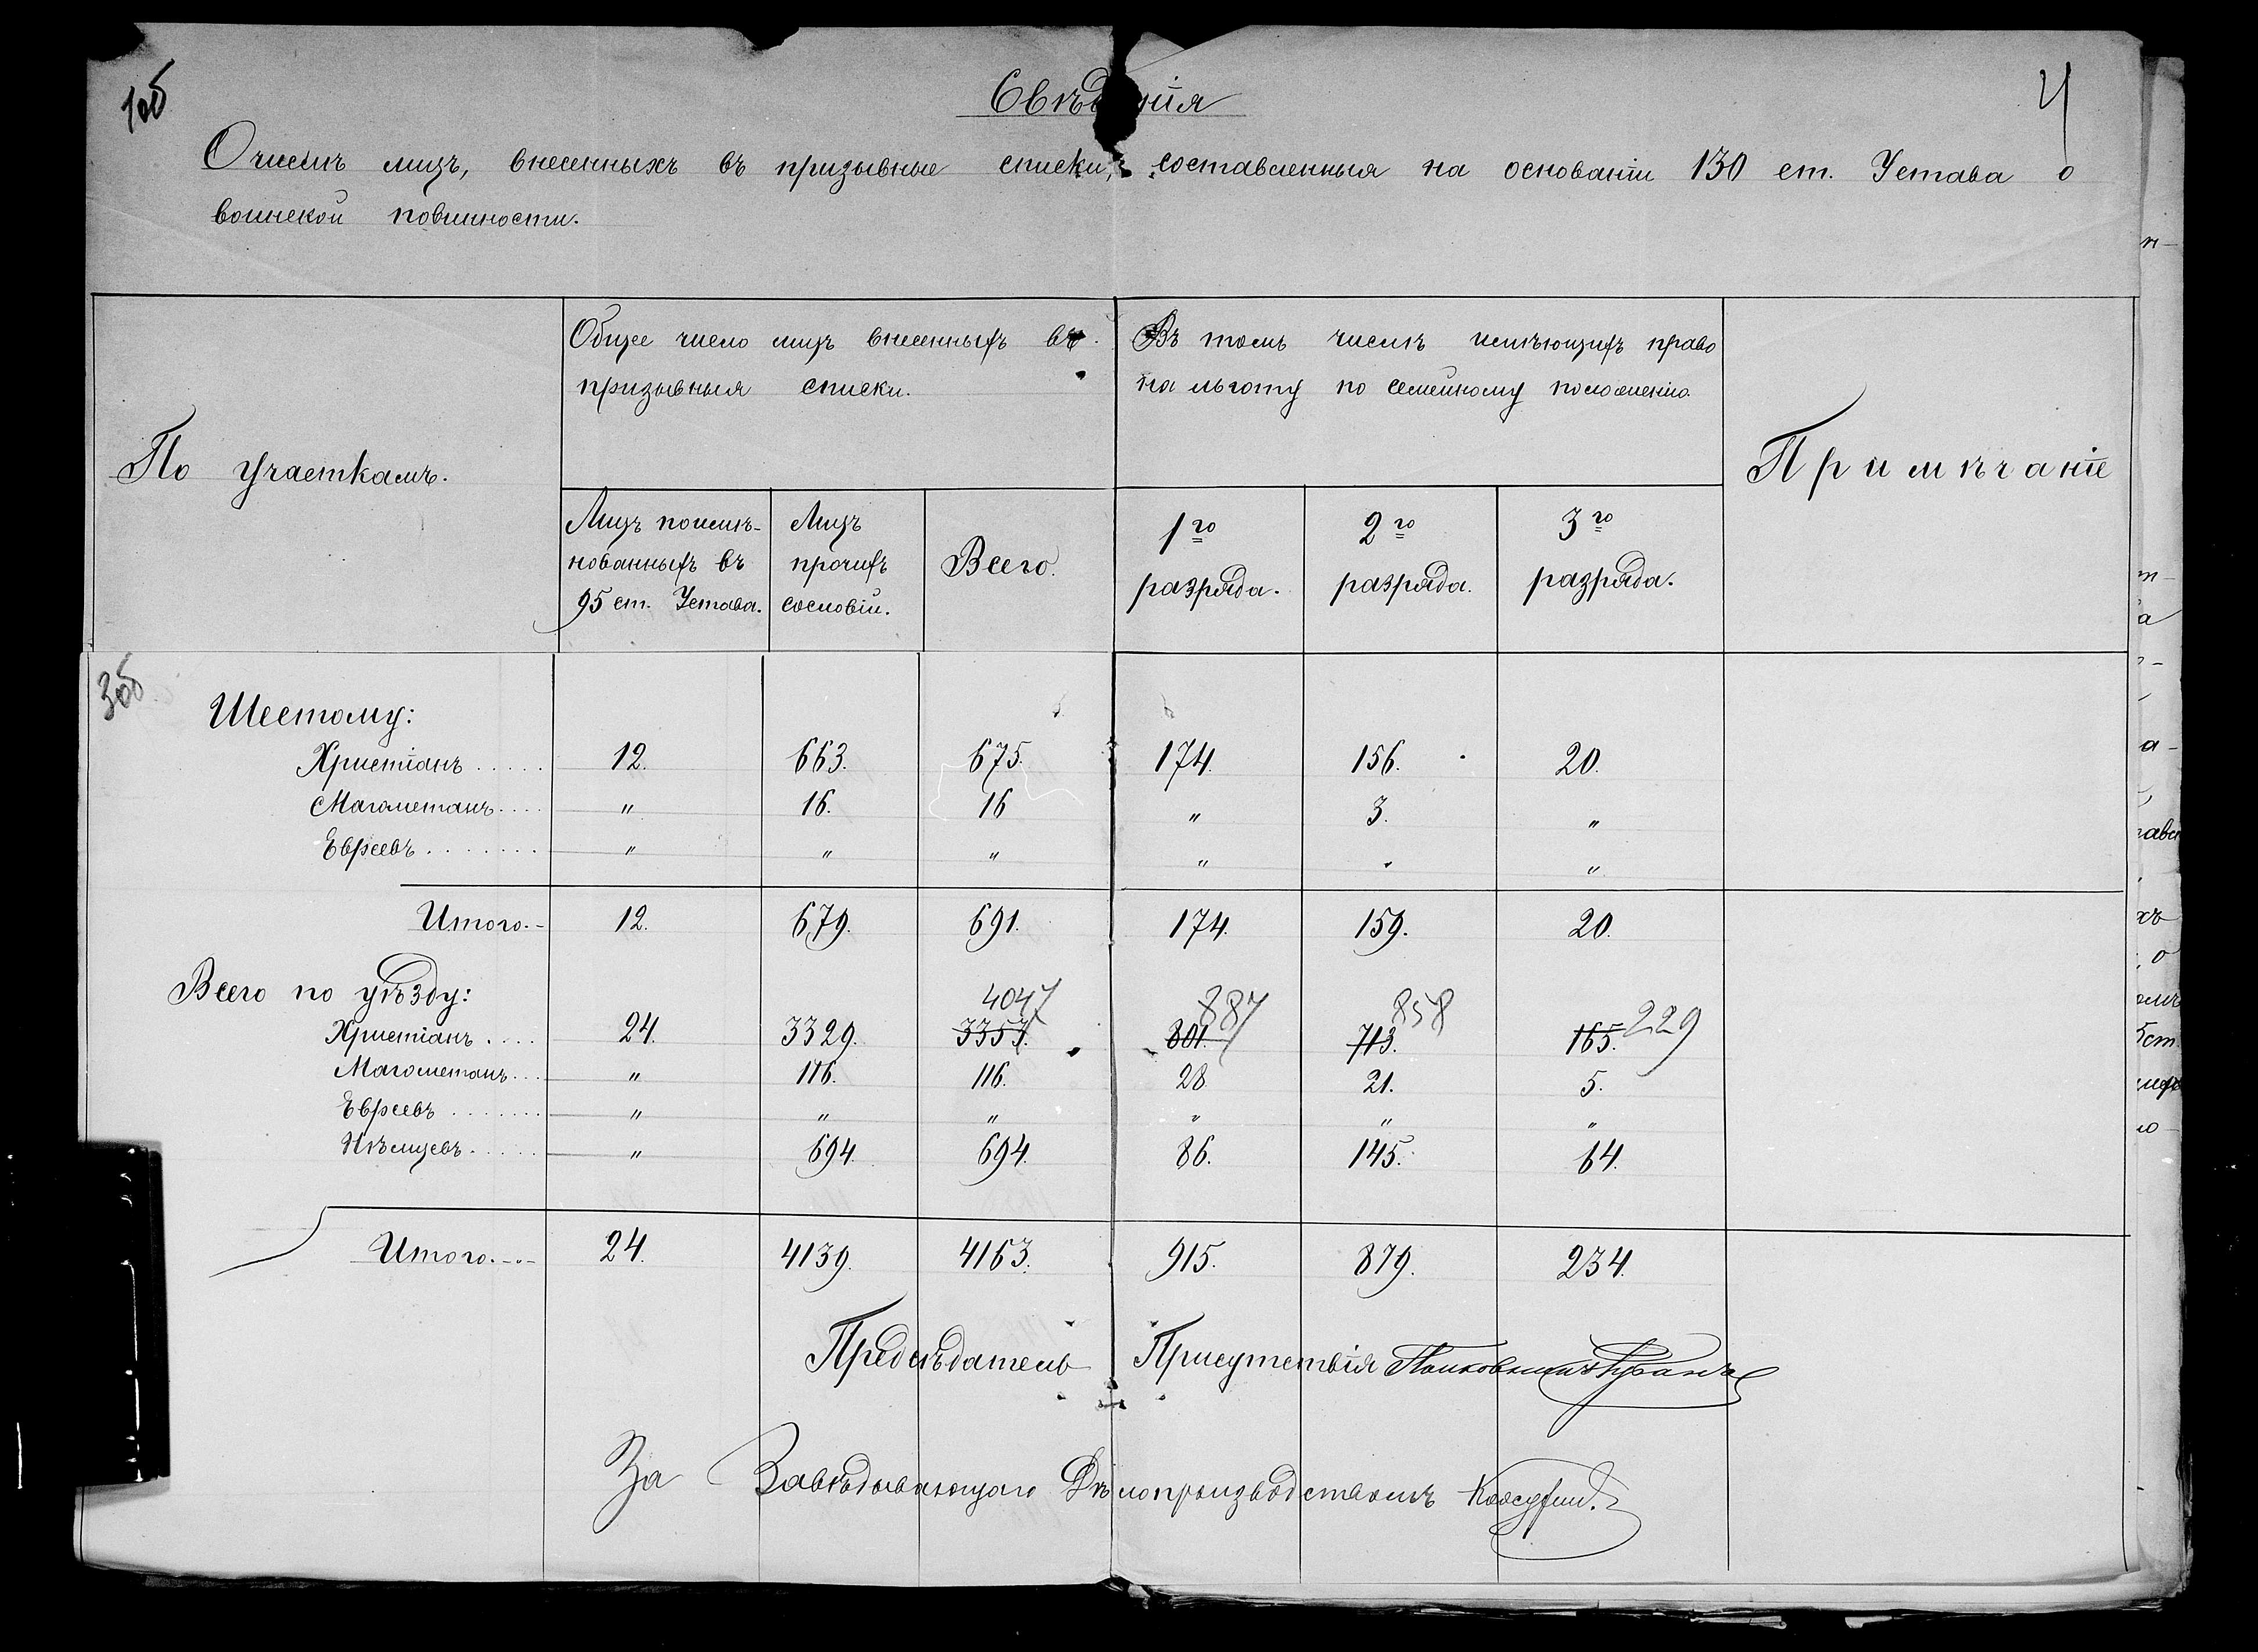 1об
4
Свѣдѣнія
О числѣ лицъ, внесенныхъ въ призывные списки, составленныя на основаніи 130 ст. Устава о
воинской повинности.
По участкамъ.
Общее число лицъ внесенныхъ въ
призывныя списки.
Въ томъ числѣ имѣющихъ право
на льготу по семейному положенію.
Примѣчаніе
Лицъ поимѣ-
нованныхъ въ
95 ст. Устава.
Лицъ
прочихъ
сословій.
Всего.
1го
разряда.
2го
разряда.
3го
разряда.
3об
Шестому:
Христіанъ ..... 12. 663. 675. 174. 156. 20.
Магометанъ .... " 16. 16 " 3. "
Евреевъ ....... " " " " " "
Итого.- 12. 679. 691. 174. 159. 20.
Всего по уѣзду:
4047 887 858 229
Христіанъ .... 24. 3329. 3353. 801. 713. 165.
Магометанъ ... " 116. 116. 28 21. 5.
Евреевъ ....... " " " " " "
Нѣмцевъ ..... " 694. 694. 86. 145. 64.
Итого.-.- 24. 4139. 4163. 915. 879. 234.
Предсѣдатель Присутствія Полковникъ
За Завѣдывающаго Дѣлопроизводствомъ